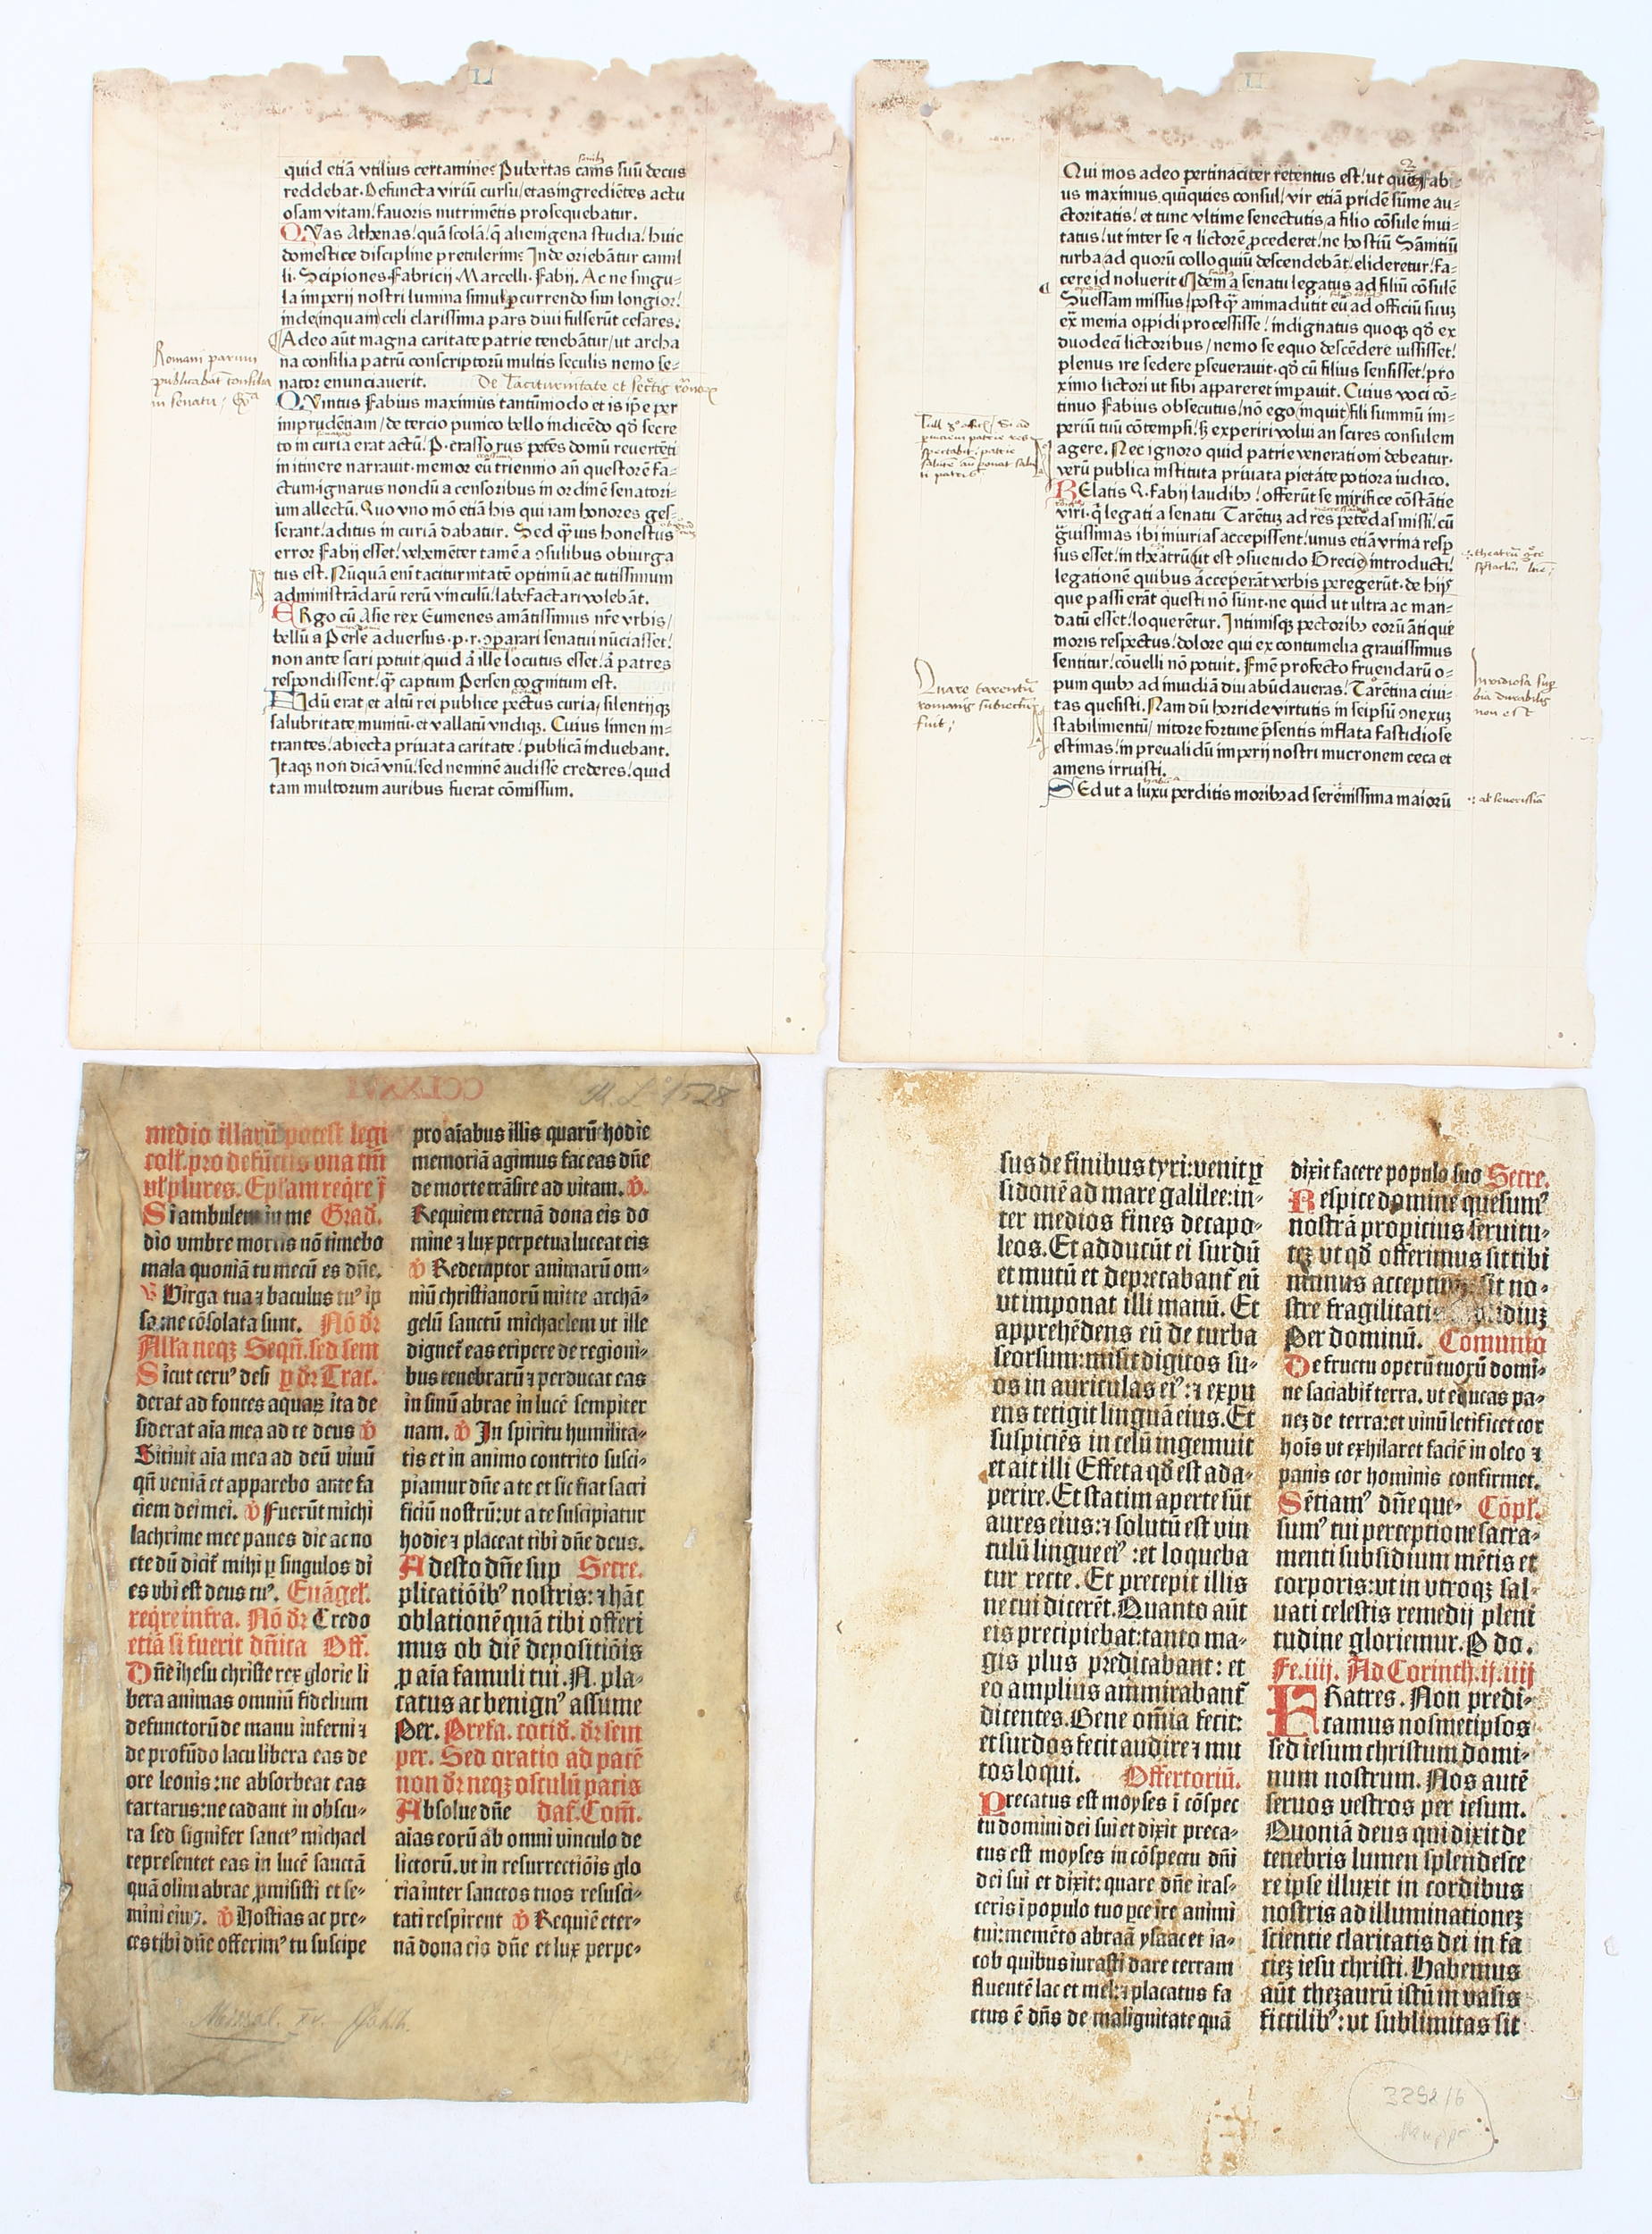 II
quid etiā vtilius certamine? Pubertas canis suū decus
reddebat. Defuncta viriū cursu/etas ingrediētes actu
osam vitam/fauoris nutrimētis prosequebatur.
QVas Athenas/quā scolā/q̄ alienigena studia/huic
domestice discipline pretulerim? Inde oriebātur camil
li. Scipiones. Fabricii. Marcelli. Fabij. Ac ne singu-
la imperij nostri lumina simul ꝑcurrendo sim longior/
inde(inquam)celi clarissima pars diui fulserūt cesares.
Adeo aūt magna caritate patrie tenebātur/ut archa
na consilia patrū conscriptorū multis seculis nemo se-
nator enunciauerit.
De Taciturnitate et
QVintus Fabius maximus tantūmodo et is ip̄e per
imprudētiam/de tercio punico bello indicēdo qđ secre
to in curia erat actū/P. crasso rus petēs domū reuertēti
in itinere narrauit. memor eū triennio añ questorē fa-
ctum. ignarus nondū a censoribus in ordinē senatori-
um allectū. Quo vno mō etiā his qui iam honores ges-
serant/aditus in curiā dabatur. Sed q̄uis honestus
error Fabij esset/vehemēter tamē a ↄsulibus obiurga
tus est. Nūquā enī taciturnitatē optimū ac tutissimum
administrādarū rerū vinculū/labefactari volebāt.
ERgo cū Asie rex Eumenes amātissimus nr̄e vrbis/
bellū a Perse aduersus. p. r. ↄparari senatui nūciasset/
non ante sciri potuit/quid aͭ ille locutus esset/aͭ patres
respondissent/q̄ captum Persen cognitum est.
FIdū erat et altū rei publice pectus curia/silentijqꝫ
salubritate munitū et vallatū vndiqꝫ. Cuius limen in-
trantes/abiecta priuata caritate/publicā induebant.
Itaqꝫ non dicā vnū/sed neminē audisse crederes/quid
tam multorum auribus fuerat cōmissum.
Romani parum
publicabāt consilia
in senatu
II
Qui mos adeo pertinaciter retentus est/ut Fabi-
us maximus quīquies consul/vir etiā pridē sūme au-
ctoritatis/et tunc vltime senectutis/a filio cōsule inui-
tatus/ut inter se ⁊ lictorē ꝓcederet/ne hostiū Sānitiū
turba/ad quorū colloquiū descendebāt/elideretur/fa-
cere id noluerit Idem a senatu legatus ad filiū cōsulē
Suessam missus/postq̄ animaduertit eū ad officiū suuꝫ
ex menia oppidi processisse/indignatus quoqꝫ qđ ex
duodecī lictoribus/nemo se equo descēdere iussisset/
plenus ire sedere ꝑseuerauit. qđ cū filius sensisset/pro
ximo lictori ut sibi appareret imperauit. Cuius voci cō-
tinuo Fabius obsecutus/nō ego(inquit)fili summū im-
periū tuū cōtempsi/sꝫ experiri volui an scires consulem
agere. Nec ignoro quid patrie venerationi debeatur.
verū publica instituta priuata pietate potiora iudico.
RElatis Q. Fabij laudibꝫ/offerūt se mirifice cōstātie
viri. q̄ legati a senatu Tarētuꝫ ad res petēdas missi/cū
guissimas ibi iniurias accepissent/unus etiā vrina resp
sus esset/in theatrū(ut est ↄsuetudo Grecie)introducti/
legationē quibus acceperāt verbis peregerūt. de hijs
que passi erāt questi nō sunt. ne quid ut ultra ac man-
datū esset/loquerētur. Intimisqꝫ pectoribꝫ eorū ātique
moris respectus/dolore qui ex contumelia grauissimus
sentitur/cōuelli nō potuit. Finē profecto fruendarū o-
pum quibꝫ ad inuidiā diu abūdaueras/Tarētina ciui-
tas quesisti. Nam dū horride virtutis in seipsū ↄnexuꝫ
stabilimentū/nitore fortune p̄sentis inflata fastidiose
estimas/in preualidū imperij nostri mucronem ceca et
amens irruisti.
SEd ut a luxu perditis moribꝫ ad serenissima maiorū
Quare tarentū
romanis subiectū
fuit;
Inuidiosa sup
bia durabilis
non est
CCLXXVI
1528
medio illarū potest legi
coll. pro defūctis vna tm̄
vl' plures. Ep̄lam reqͥre ī
Si ambulem in me Grad.
dio vmbre mortis nō timebo
mala quoniā tu mecū es dn̄e.
V Uirga tua ⁊ baculus tuꝰ ip
sa me cōsolata sunt. Nō dr̄
Alla neqꝫ Seqū. sed sem
Sicut ceruꝰ desi ꝑ dr̄ Trac.
derat ad fontes aquaꝝ ita de
siderat aīa mea ad te deus V
Sitiuit aīa mea ad deū viuū
qn̄ veniā et apparebo ante fa
ciem dei mei. V Fuerūt michi
lachrime mee panes die ac no
cte dū dicit̄ mihi ꝑ singulos di
es vbi est deus tuꝰ. Euāgel.
reqͥre infra. Nō dr̄ Credo
etiā si fuerit dn̄ica Off.
Dn̄e ihesu christe rex glorie li
bera animas omniū fidelium
defunctorū de manu inferni ⁊
de profūdo lacu libera eas de
ore leonis: ne absorbeat eas
tartarus: ne cadant in obscu-
ra sed signifer sanctꝰ michael
representet eas in lucē sanctā
quā olim abrae ꝓmisisti et se-
mini eius. V Hostias ac pre-
ces tibi dn̄e offerimꝰ tu suscipe
pro aīabus illis quarū hodie
memoriā agimus fac eas dn̄e
de morte trāsire ad vitam. V.
Requiem eternā dona eis do
mine ⁊ lux perpetua luceat eis
V Redemptor animarū om-
niū christianorū mitte archā-
gelū sanctū michaelem vt ille
dignet̄ eas eripere de regioni-
bus tenebrarū ⁊ perducat eas
in sinū abrae in lucē sempiter
nam. V In spiritu humilita-
tis et in animo contrito susci-
piamur dn̄e a te et sic fiat sacri
ficiū nostrū: vt a te suscipiatur
hodie ⁊ placeat tibi dn̄e deus.
Adesto dn̄e sup Secre.
plicatiōibꝰ nostris: ⁊ hāc
oblationē quā tibi offeri
mus ob diē depositiōis
ꝓ aīa famuli tui. N. pla-
catus ac benignꝰ assume
Per. Prefa. cotid. dr̄ sem
per. Sed oratio ad pacē
non dr̄ neqꝫ osculū pacis
Absolue dn̄e daf. Com̄.
aīas eorū ab omni vinculo de
lictorū. vt in resurrectiōis glo
ria inter sanctos tuos resusci-
tati respirent V Requiē eter-
nā dona eis dn̄e et lux perpe-
Missal. XV. Jahrh.
sus de finibus tyri: venit ꝑ
sidonē ad mare galilee: in-
ter medios fines decapo-
leos. Et adducūt ei surdū
et mutū et deprecabant̄ eū
vt imponat illi manū. Et
apprehēdens eū de turba
seorsum: misit digitos su-
os in auriculas eiꝰ: ⁊ expu
ens tetigit linguā eius. Et
suspiciēs in celū ingemuit
et ait illi Effeta qđ est ada-
perire. Et statim aperte sūt
aures eius: ⁊ solutū est vin
culū lingue eiꝰ: et loqueba
tur recte. Et precepit illis
ne cui dicerēt. Quanto aūt
eis precipiebat: tanto ma-
gis plus predicabant: et
eo amplius ammirabant̄
dicentes. Bene om̄ia fecit:
et surdos fecit audire ⁊ mu
tos loqui. Offertoriū.
Precatus est moyses ī cōspec
tu domini dei sui et dixit preca-
tus est moyses in cōspectu dn̄i
dei sui et dixit: quare dn̄e iras-
ceris ī populo tuo ꝑce ire animi
tui: memēto abraā ysaac et ia-
cob quibus iurasti dare terram
fluentē lac et mel: ⁊ placatus fa
ctus ē dn̄s de malignitate quā
dixit facere populo suo Secre.
Respice domine quesumꝰ
nostrā propicius seruitu-
teꝫ vt qđ offerimus sit tibi
munus acceptum sit no-
stre fragilitatis
Per dominū. Comunio
De fructu operū tuorū domi-
ne saciabit̄ terra. vt educas pa-
neꝫ de terra: et vinū letificet cor
hoīs vt exhilaret faciē in oleo ⁊
panis cor hominis confirmet.
Sētiamꝰ dn̄e que- Cōpl.
sumꝰ tui perceptione sacra-
menti subsidium mētis et
corporis: vt in vtroqꝫ sal-
uati celestis remedij pleni
tudine gloriemur. P do.
Fe. iiij. Ad Corinth. ij. iiij
FRatres. Non predi-
camus nosmetipsos
sed iesum christum domi-
num nostrum. Nos autē
seruos vestros per iesum.
Quoniā deus qui dixit de
tenebris lumen splendesce
re ipse illuxit in cordibus
nostris ad illuminationeꝫ
scientie claritatis dei in fa
cieꝫ iesu christi. Habemus
aūt thezaurū istū in vasis
fictilibꝰ: vt sublimitas sit